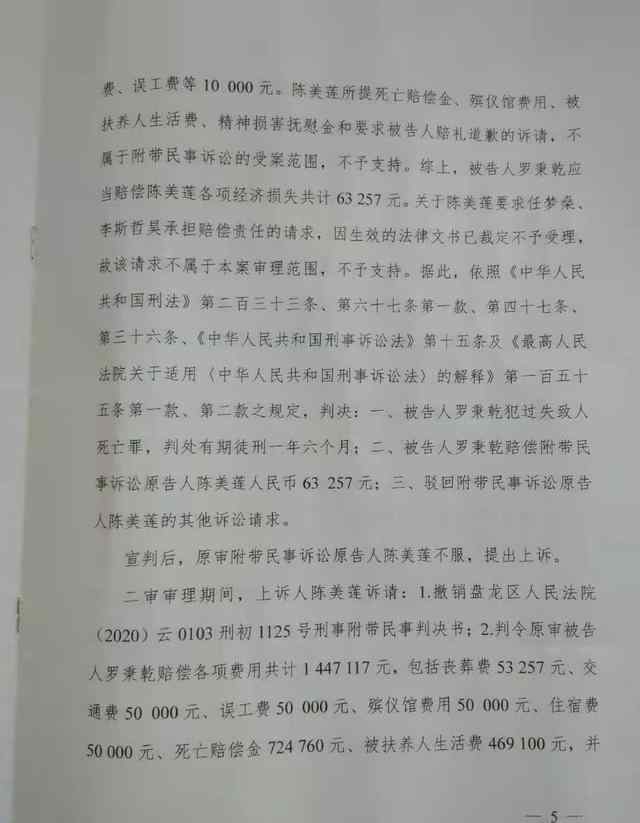 费、误工费等10 000元。陈美莲所提死亡赔偿金、殡仪馆费用、被
扶养人生活费、精神损害抚慰金和要求被告人赔礼道歉的诉请，不
属于附带民事诉讼的受案范围，不予支持。综上，被告人罗秉乾应
当赔偿陈美莲各项经济损失共计63 257元。关于陈美莲要求任梦桑、
李斯哲昊承担赔偿责任的请求，因生效的法律文书已裁定不予受理，
故该请求不属于本案审理范围，不予支持。据此，依照《中华人民
共和国刑法》第二百三十三条、第六十七条第一款、第四十七条、
第三十六条、《中华人民共和国刑事诉讼法》第十五条及《最高人民
法院关于适用〈中华人民共和国刑事诉讼法〉的解释》第一百五十
五条第一款、第二款之规定，判决：一、被告人罗秉乾犯过失致人
死亡罪，判处有期徒刑一年六个月；二、被告人罗秉乾赔偿附带民
事诉讼原告人陈美莲人民币63 257元；三、驳回附带民事诉讼原告
人陈美莲的其他诉讼请求。
宣判后，原审附带民事诉讼原告人陈美莲不服，提出上诉。
二审审理期间，上诉人陈美莲诉请：1.撤销盘龙区人民法院
（2020）云0103刑初1125号刑事附带民事判决书；2.判令原审被告
人罗秉乾赔偿各项费用共计1 447 117元，包括丧葬费53 257元、交
通费50 000元、误工费50 000元、殡仪馆费用50 000元、住宿费
50 000元、死亡赔偿金724 760元、被扶养人生活费469 100元，并
— 5 —